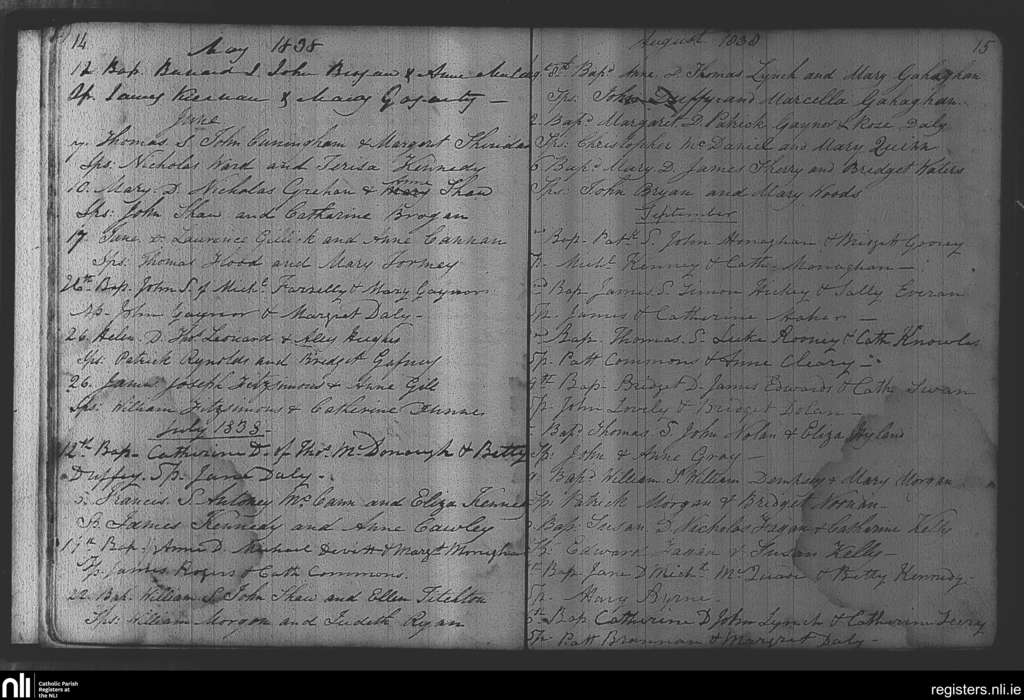 14
May 1838
12 Bap. Barnard S John Brogan & Anne
Sp. James Kiernan & Mary Gogerty —
June
Thomas S John Cuningham & Margaret Sheridan
Sps. Nicholas Ward and Terisa Kennedy
10. Mary. D. Nicholas Grehan & Shaw
Sps: John Shaw and Catharine Brogan
17. Jane D Laurence Gillick and Anne Cannan
Sps. Thomas Flood and Mary Tormey
26th Bap. John S. of Michl. Farrelly & Mary Gaynor
Sp. John Gaynor & Margret Daly —
26. Helen. D. Thos Leonard & Aley Hughes
Sps. Patrick Reynolds and Bridget Gafney
26. James Joseph Fitzsimons & Anne Gill
Sps: William Fitzsimons & Catherine Dunne
July 1838 —
12th Bap — Catherine D. of Thos. McDonough & Betty
Duffey. Sp. Jane Daly —
Francis. S. McCann and Eliza Kennedy
Sp. James Kennedy and Anne Cawley
17th Bap. Anne D. Michael Devitt & Margt Monighan
Sp. James Rogers & Cath Commons.
22. Bap. William S. John Shaw and Ellen
Sps. William Morgan and Judith Ryan
August 1838
15
5th Bapd Anne, D. Thomas Lynch and Mary Gahaghan
Sps. John Duffy and Marcella Gahaghan
Bapd Margaret, D. Patrick Gaynor & Rose Daly
Sps: Christopher McDaniel and Mary Quinn
Bapd Mary D. James Sherry and Bridget Waters
Sps: John Bryan and Mary Woods
September
Bap — Patk S. John Monaghan & Bridget Groney
Sp. Michl. Kenney & Cath. Monaghan —
Bap James S. Simon Hickey & Sally Everan
Sp. James & Catherine Maher —
Bap. Thomas. S. Luke Rooney & Cath Knowles
Sp. Patt Commons & Anne Cleary —
9th Bap — Bridget D. James Edwards & Cathe Swan
Sp. John Lovely & Bridget Dolan —
Bapd Thomas S John Nolan & Eliza Hyland
Sp: John & Anne Gray —
Bapd William S William Dempsey & Mary Morgan
Sp: Patrick Morgan & Bridget Noonan —
Bap: Susan D Nicholas Fagan & Catharine Kelly
Sp: Edward Fagan & Susan Kelly —
Bap Jane D Michl. McQuade & Betty Kennedy —
Sp. Mary Byrne —
Bap Catherine D John Lynch & Catherine
Sp. Patt Brannan & Margret Daly —
nli
Catholic Parish
Registers at
the NLI
registers.nli.ie